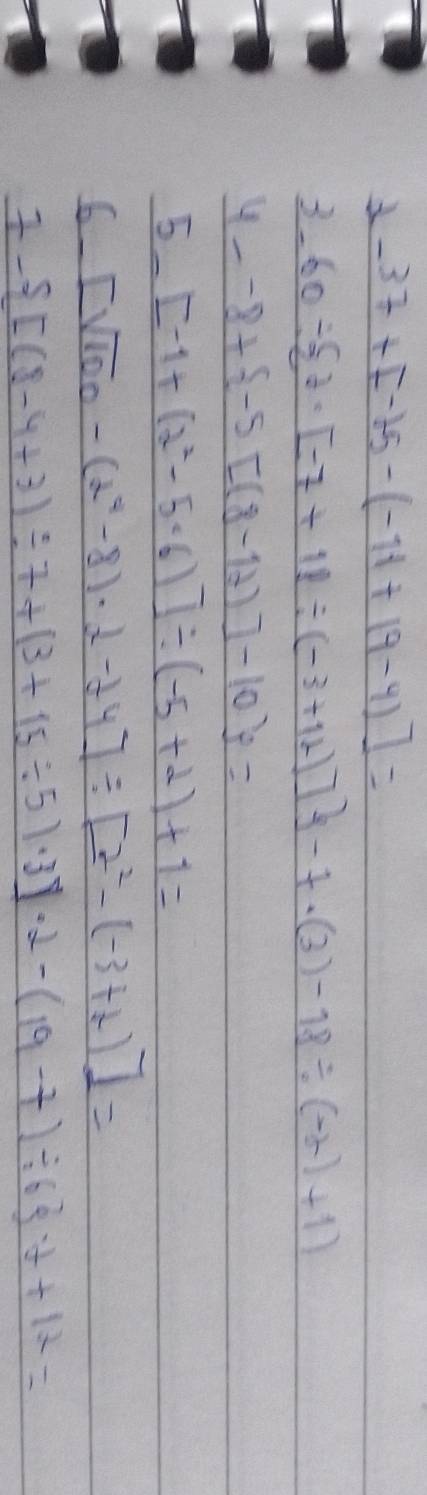 2_ 37 + [-25 - (-11 + 19 - 4)] =
3_ 60 ÷ {2 · [-7 + 18 ÷ (-3 + 12)]} - 7 · (3) - 18 ÷ (-2) + 1)
4_ -8 + {-5 [(8 - 12)] - 10} =
5_ [-1 + (2² - 5 · 6)] ÷ (-5 + 2) + 1 =
6_ [√100 - (2⁴ - 8) · 2 - 24] ÷ [2² - (-3 + 2)] =
7_ {[(8 - 4 + 3) ÷ 7 + (3 + 15 ÷ 5) · 3] · 2 - (19 - 7) ÷ 6} · 2 + 12 =